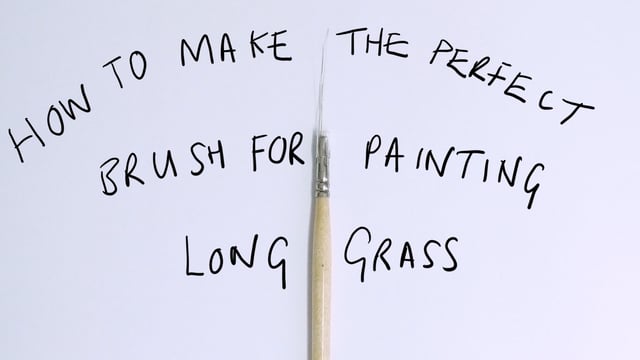 HOW TO MAKE THE PERFECT
BRUSH FOR PAINTING
LONG GRASS